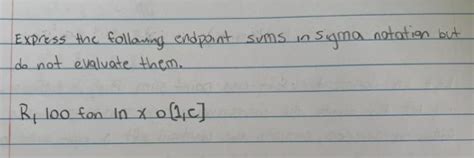 Express the following endpoint sums in sigma notation but
do not evaluate them.
R, 100 for ln x o [1,c]